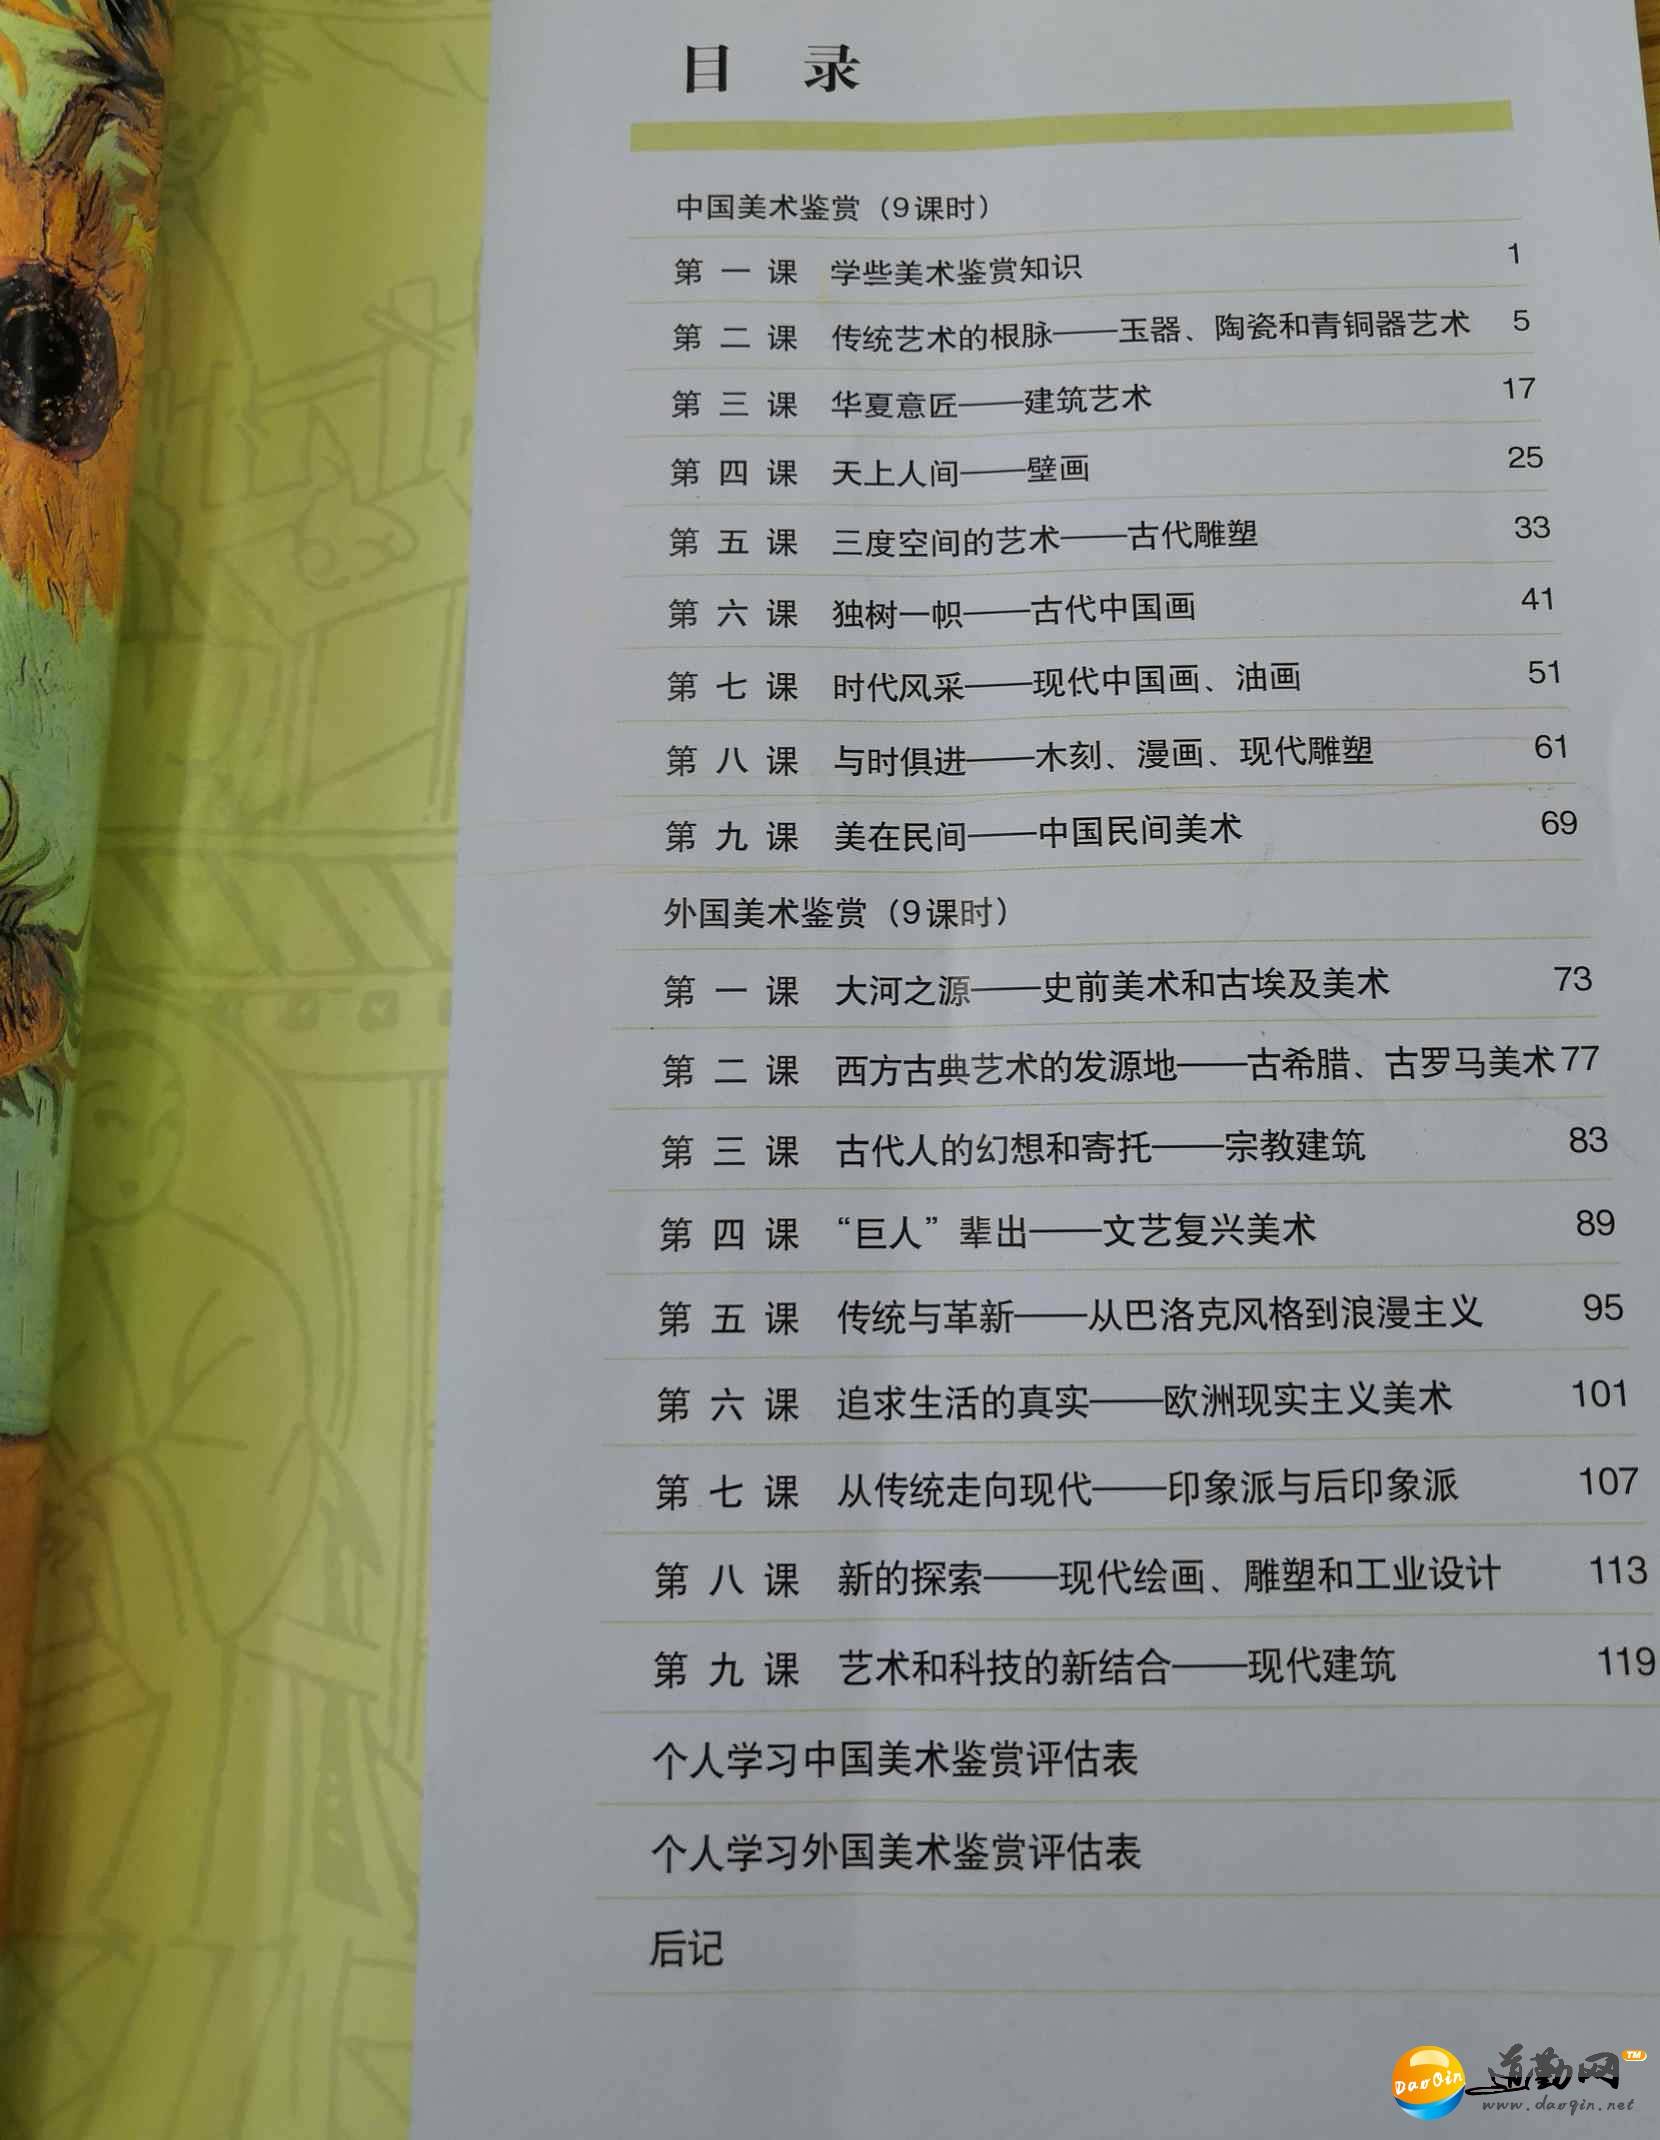 目 录
中国美术鉴赏（9课时）
第 一 课 学些美术鉴赏知识 1
第 二 课 传统艺术的根脉——玉器、陶瓷和青铜器艺术 5
第 三 课 华夏意匠——建筑艺术 17
第 四 课 天上人间——壁画 25
第 五 课 三度空间的艺术——古代雕塑 33
第 六 课 独树一帜——古代中国画 41
第 七 课 时代风采——现代中国画、油画 51
第 八 课 与时俱进——木刻、漫画、现代雕塑 61
第 九 课 美在民间——中国民间美术 69
外国美术鉴赏（9课时）
第 一 课 大河之源——史前美术和古埃及美术 73
第 二 课 西方古典艺术的发源地——古希腊、古罗马美术 77
第 三 课 古代人的幻想和寄托——宗教建筑 83
第 四 课 “巨人”辈出——文艺复兴美术 89
第 五 课 传统与革新——从巴洛克风格到浪漫主义 95
第 六 课 追求生活的真实——欧洲现实主义美术 101
第 七 课 从传统走向现代——印象派与后印象派 107
第 八 课 新的探索——现代绘画、雕塑和工业设计 113
第 九 课 艺术和科技的新结合——现代建筑 119
个人学习中国美术鉴赏评估表
个人学习外国美术鉴赏评估表
后记
DaoQin 道勤网 TM
www.daoqin.net